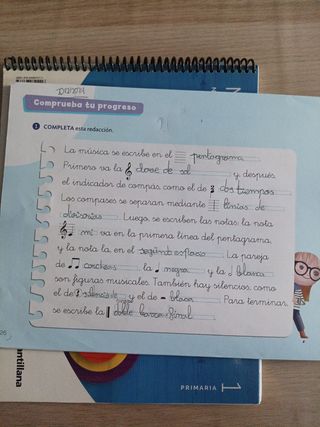 Comprueba tu progreso
1 COMPLETA esta redacción.
La música se escribe en el pentagrama.
Primero va la clave de sol y después
el indicador de compás, como el de dos tiempos
Los compases se separan mediante líneas de
divisorias. Luego, se escriben las notas: la nota
mi va en la primera línea del pentagrama,
y la nota la, en el segundo espacio. La pareja
de corcheas, la negra y la blanca
son figuras musicales. También hay silencios, como
el de silencio de y el de blanca. Para terminar,
se escribe la doble barra final.
PRIMARIA 1
antillana